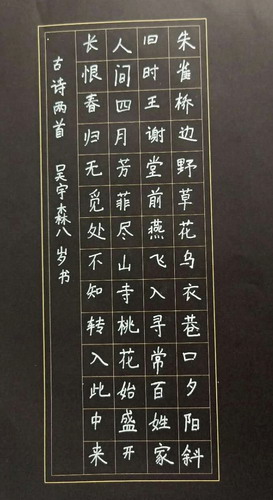 朱雀桥边野草花乌衣巷口夕阳斜
旧时王谢堂前燕飞入寻常百姓家
人间四月芳菲尽山寺桃花始盛开
长恨春归无觅处不知转入此中来
古诗两首 吴宇森八岁书